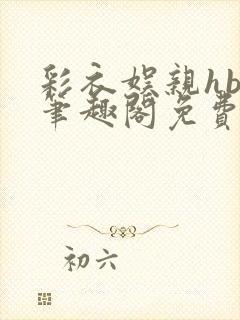 彩衣娱親hb
筆趣閣免費
初六